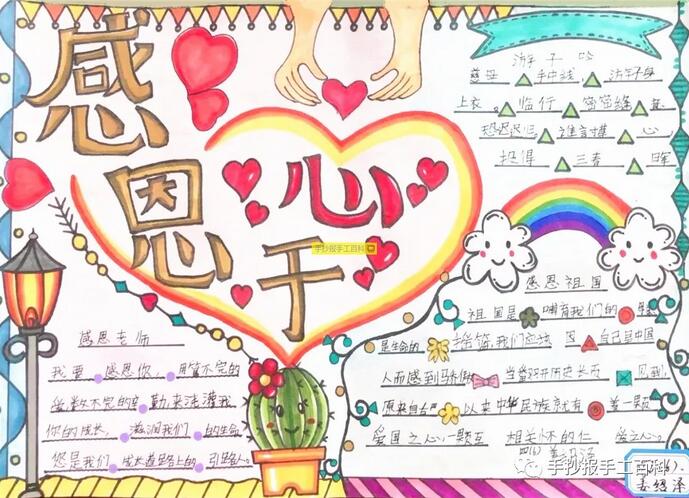 感恩
心
于
手抄报手工百科
游子吟
慈母 手中线 游子身
上衣 临行 密密缝
恐迟迟归 谁言寸草 心
报得 三春 晖
感恩老师
我要 感恩你
勤来浇灌我
你的成长 滋润我们 的生命
您是我们 成长道路上的 引路人
感恩祖国
祖国是 哺育我们的
是生命的 摇篮,我们应该 因 自己是中国
人而感到骄傲 当翻开历史长页 见到
原来自古 以来中华民族就有 着一颗
爱国之心,一颗互 相关怀的仁 爱之心。
手抄报手工百科
姜绍泽